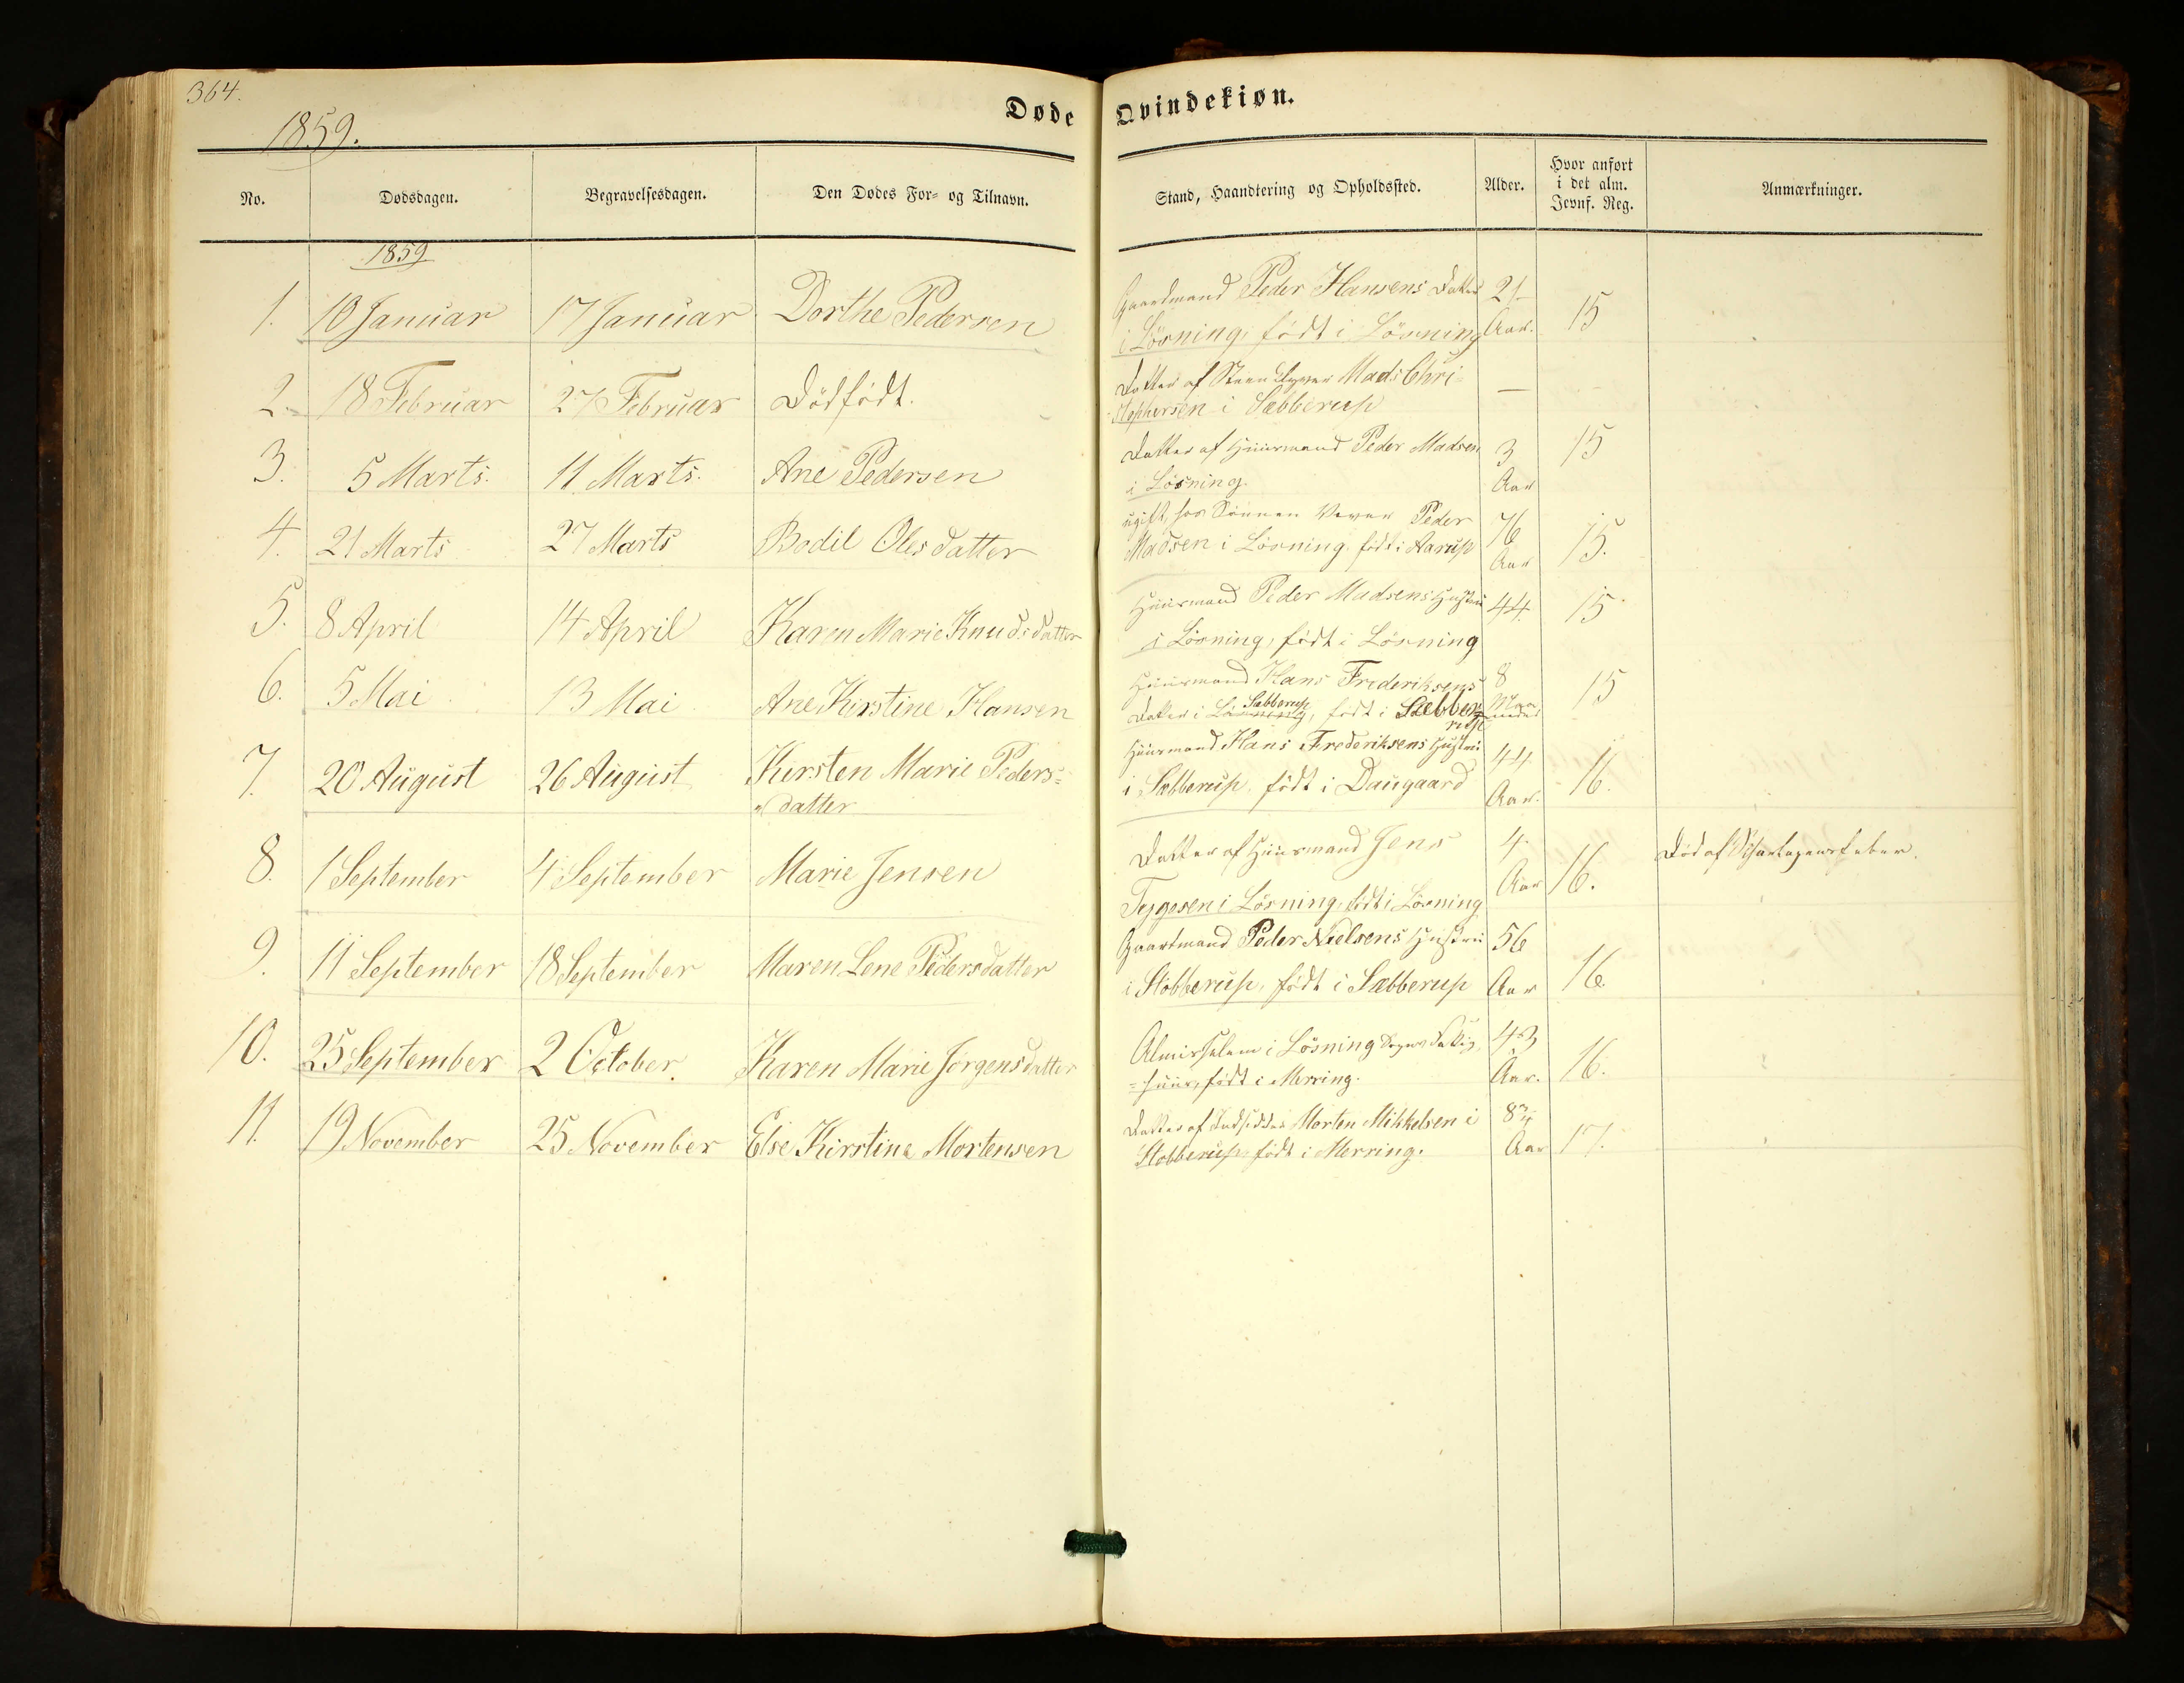 364.
1859.
Døde Qvindekiøn.
No. Dødsdagen. Begravelsesdagen. Den Dødes For- og Tilnavn. Stand, Haandtering og Opholdssted. Alder. Hvor anført i det alm. Jevnf. Reg. Anmærkninger.
1859
1. 10 Januar 17 Januar Dorthe Pedersen Gaardmand Peder Hansens Datter 21 15
i Lösning, födt i Lösning Aar.
2. 18 Februar 27 Februar Dödfödt. Datter af Mads Chri-
stophersen i Sæbberup —
3. 5 Marts. 11 Marts. Ane Pedersen Datter af Huusmand Peder Madsen 3 15
i Lösning. Aar
4. 21 Marts 27 Marts Bodil Olesdatter ugift, hos Sönnen Væver Peder 76 15.
Madsen i Lösning födt i Aarup Aar
5. 8 April 14 April Karen Marie Knudsdatter Huusmand Peder Madsens Hustru 44 15
i Lösning, födt i Lösning
6. 5 Mai 13 Mai Ane Kirstine Hansen Huusmand Hans Frederiksens 8 15
Datter i Lösning Sæbberup, födt i Sæbbe- Maaneder
rup
7. 20 August 26 August Kirsten Marie Peders- Huusmand Hans Frederiksens Hustru 44 16.
datter i Sæbberup, födt i Daugaard Aar.
8. 1 September 4 September Marie Jensen Datter af Huusmand Jens 4 16. Död af Skarlagensfeber.
Tygesen i Lösning, födt i Lösning Aar
9. 11 September 18 September Maren Lene Pedersdatter Gaardmand Peder Nielsens Hustru 56 16.
i Stobberup, födt i Sæbberup Aar
10. 25 September 2 October Karen Marie Jörgensdatter Almisselem i Lösning Sogns Fattig- 43 16.
=huus, födt i Merring. Aar.
11. 19 November 25 November Else Kirstine Mortensen Datter af Indsidder Morten Mikkelsen i 8¾ 17.
Stobberup, födt i Merring. Aar